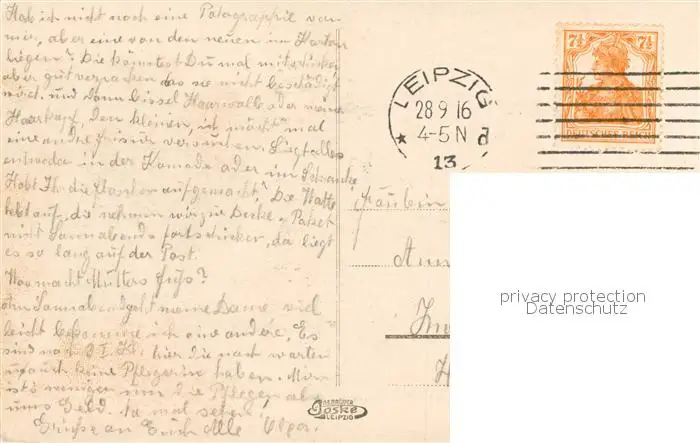 Hab ich nicht noch eine Photographie von
mir, aber eine von den neuen im Karton
liegen? Die könntest Du mal mitschicken
aber gut verpacken das sie nicht beschädigt
wird, und dann bissel Haarwolle oder meine
Haarkopf, den kleinen, ich möcht mal
eine andere Frisur versuchen. Liegt alles
entweder in der Komode oder im Schranke
Habt Ihr die Flaschen aufgemacht? Die Watte
hebt auf, die nehmen wir zur Decke. Paket
nicht Sonnabends fortschicken, da liegt
es so lang auf der Post.
Was macht Mutters Fuß?
Sonnabend geht meine Dame, viel
leicht bekomme ich eine andere. Es
sind noch hier die nach warten
auch keine Pflegerin haben. Mir
ist's weniger um die Pflegen als
ums Geld. Na mal sehen.
Grüße an Euch Alle Olga.
LEIPZIG
28 9 16
4-5 N
13
7½ 7½
DEUTSCHES REICH
Fräulein
privacy protection
Datenschutz
GEBRÜDER
Joske
LEIPZIG